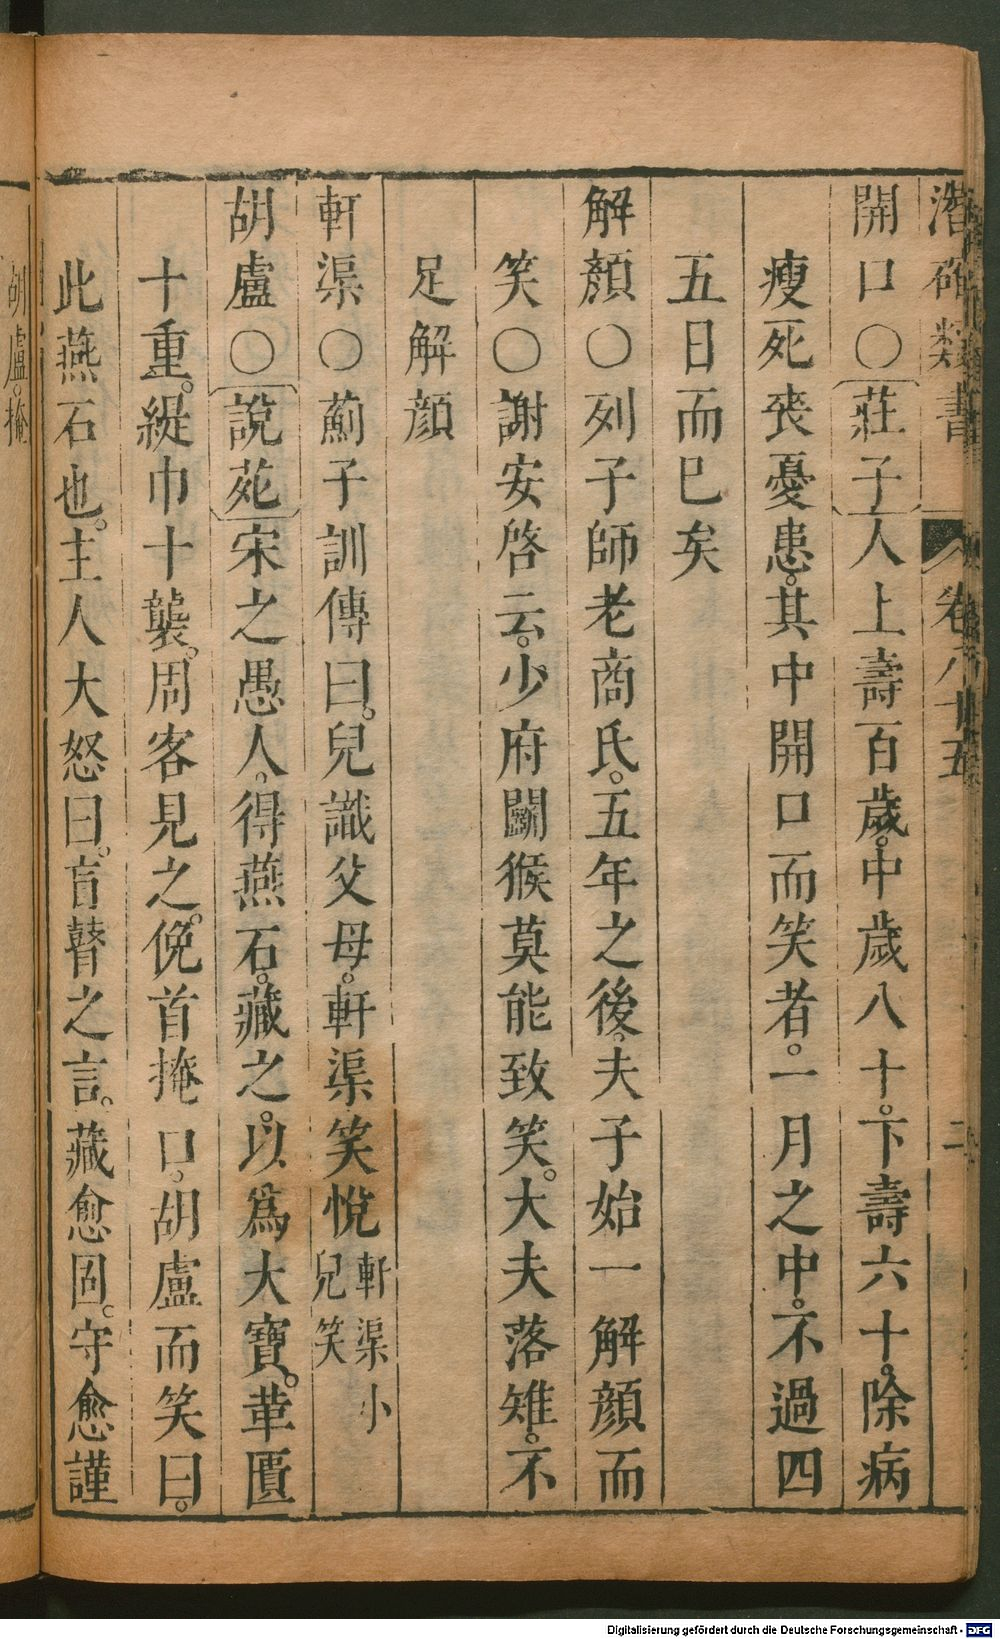 潛確類書 卷八十五 二
開口○莊子人上壽百歲。中歲八十。下壽六十。除病
瘦死喪憂患。其中開口而笑者。一月之中。不過四
五日而已矣
解顏○列子師老商氏。五年之後。夫子始一解顏而
笑○謝安啓云。少府鬭猴莫能致笑。大夫落雉。不
足解顏
軒渠○薊子訓傳曰。兒識父母。軒渠笑悅軒渠小兒笑
胡盧○說苑宋之愚人。得燕石。藏之。以爲大寶。革匱
十重。緹巾十襲。周客見之。俛首掩口。胡盧而笑曰。
此燕石也。主人大怒曰。盲瞽之言。藏愈固。守愈謹
胡盧。掩
Digitalisierung gefördert durch die Deutsche Forschungsgemeinschaft - DFG